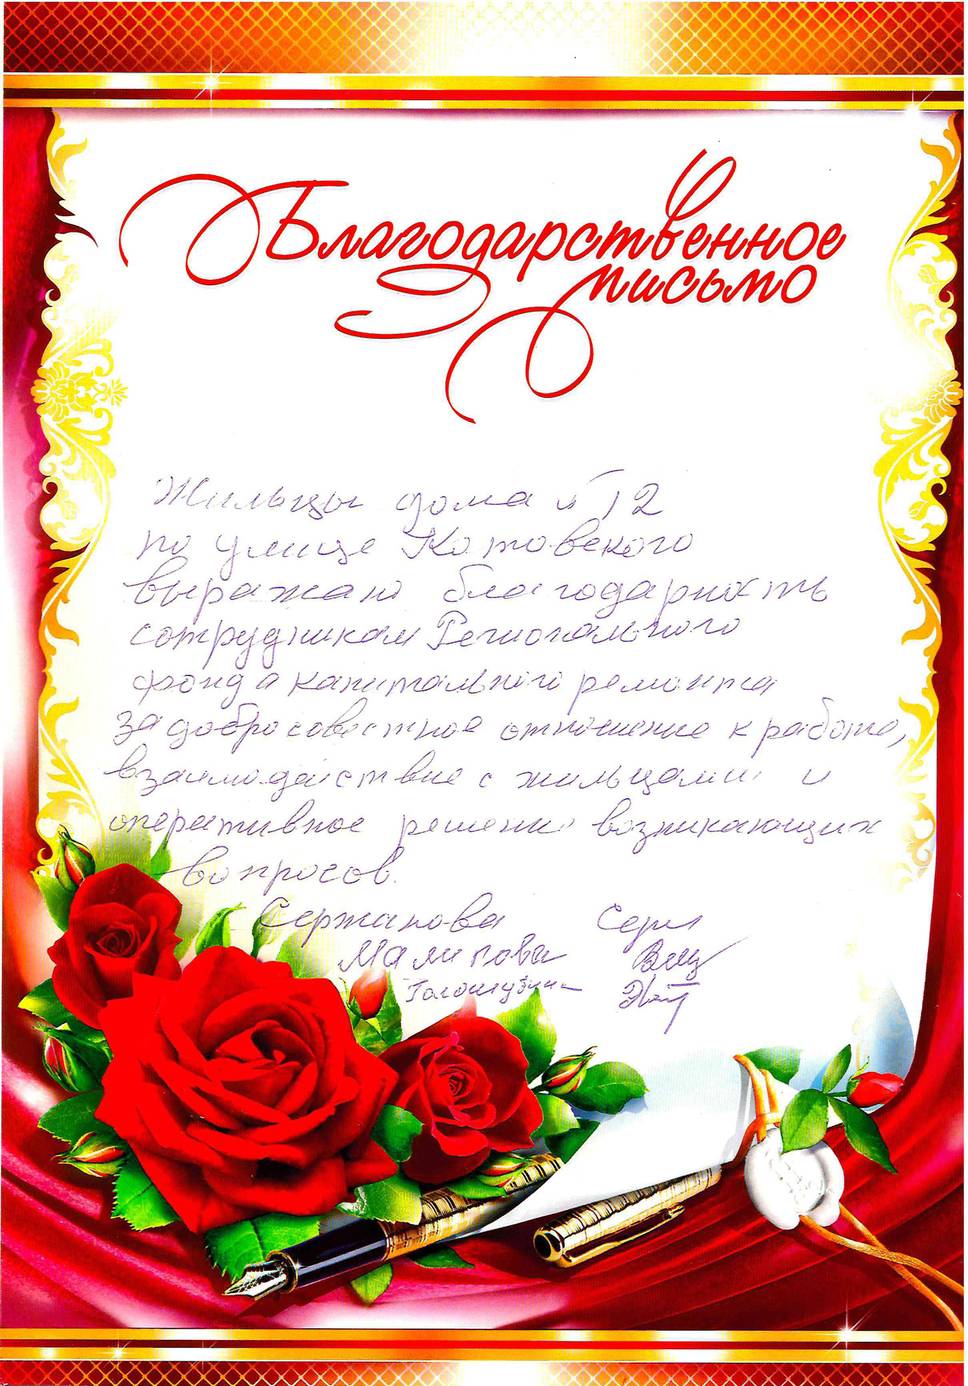 Благодарственное
письмо
Жильцы дома № 12
по улице Котовского
выражают благодарность
сотрудникам Регионального
фонда капитального ремонта
за добросовестное отношение к работе,
взаимодействие с жильцами и
оперативное решение возникающих
вопросов.
Сержанова
Малинова